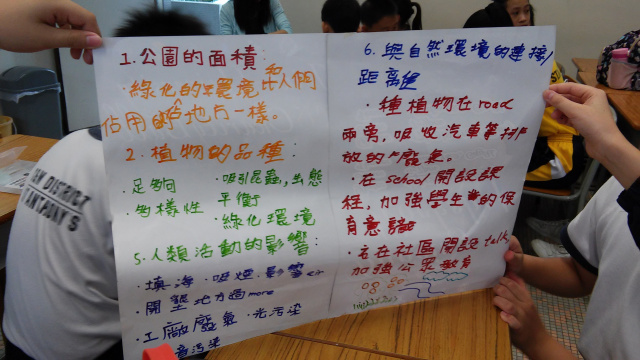 1.公園的面積:
·綠化的環境和比人們
佔用的地方一樣。
2.植物的品種:
·足夠
·多樣性
·吸引昆蟲,生態
平衡
·綠化環境
5.人類活動的影響:
·填海 ·吸煙影響air
·開墾地方過more
·工廠廢氣 ·光污染
音污染
6.與自然環境的連接/
距離
·種植物在road
兩旁,吸收汽車等排
放的廢氣。
·在school開設課
程,加強學生的保
育意識
·在社區開設talk,
加強公眾教育
DISTRICT
ANTHONY'S